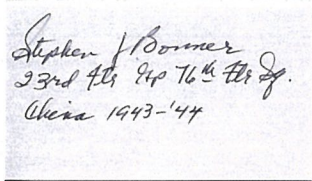 Stephen J Bonner
23rd Ftr Grp 76th Ftr Sq.
China 1943-'44